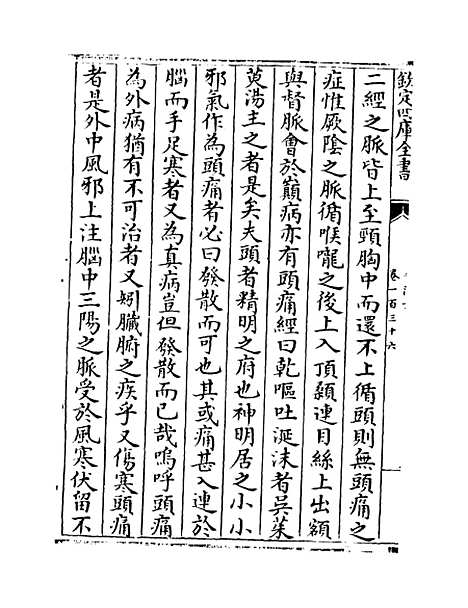 欽定四庫全書
卷一百三十六
二經之脈皆上至頸胸中而還不上循頭則無頭痛之
症惟厥陰之脈循喉嚨之後上入頂顙連目絲上出額
與督脈會於巔病亦有頭痛經曰乾嘔吐涎沫者吳茱
萸湯主之者是矣夫頭者精明之府也神明居之小小
邪氣作為頭痛者必曰發散而可也其或痛甚入連於
腦而手足寒者又為真病豈但發散而已哉嗚呼頭痛
為外病猶有不可治者又矧臟腑之疾乎又傷寒頭痛
者是外中風邪上注腦中三陽之脈受於風寒伏留不